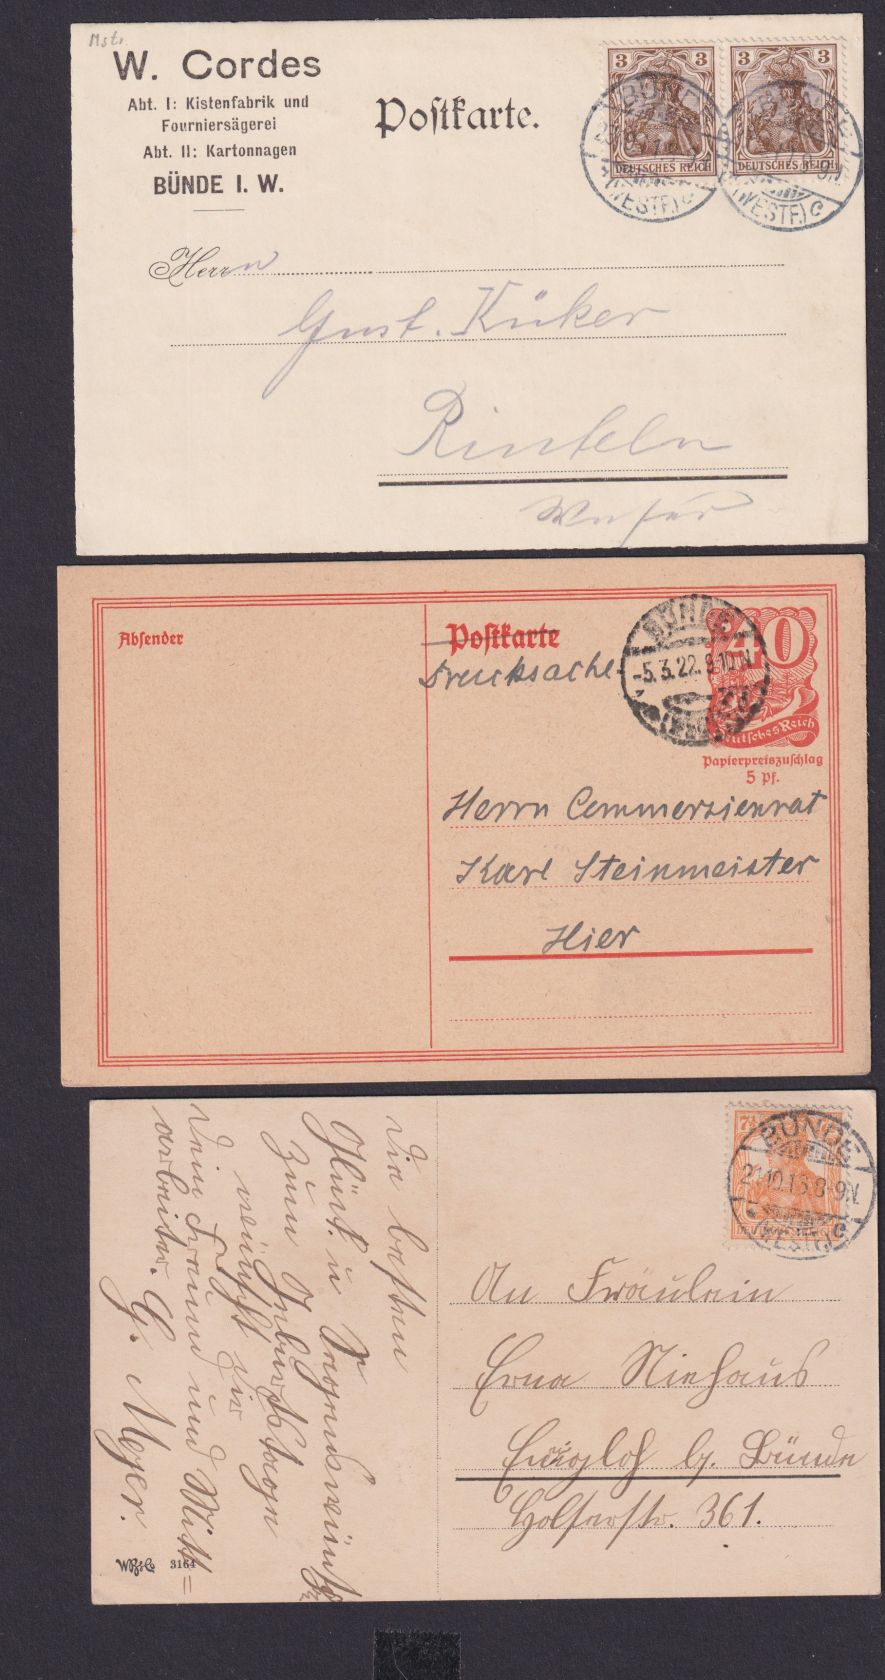 Mstr
W. Cordes
Abt. I: Kistenfabrik und
Fourniersägerei
Abt. II: Kartonnagen
BÜNDE I. W.
Poſtkarte.
3 3
DEUTSCHES REICH DEUTSCHES REICH
BÜNDE
(WESTF.) c
BÜNDE
(WESTF.) c
Herrn
Gust. Küker
Rinteln
Weser
Abſender
Poſtkarte
Drucksache
40
Deutſches Reich
BÜNDE
-5.3.22. 9-10 N
Papierpreiszuſchlag
5 Pf.
Herrn Commerzienrat
Karl Steinmeister
Hier
7½
BÜNDE
21.10.16. 8-9 N
(WESTF.) c
An Fräulein
Erna Niehaus
b. Bünde
Holserstr. 361.
Die besten
Glück u Segenswünsche
zum Geburtstage
wünscht Dir
Dein Freund und Mit=
arbeiter.
G. Meyer.
3164